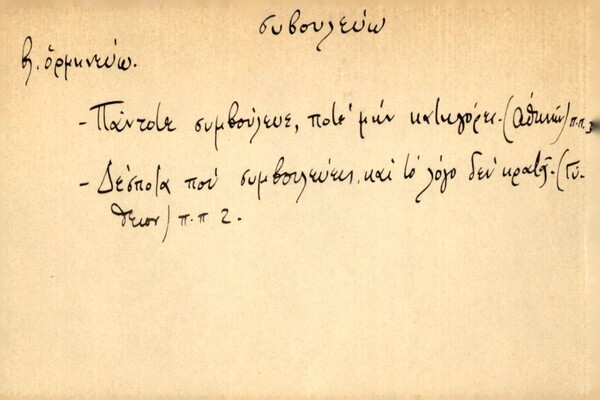 συβουλεύω
βλ. ὀρμηνεύω.
- Πάντοτε συμβούλευε, ποτέ μήν κατηγόρει. (Ἀθηνῶν) π.π. 3
- Δέσποτα πού συμβουλεύεις, καί τό λόγο δέν κρατεῖς. (Γύ-
θειον) π.π 2.